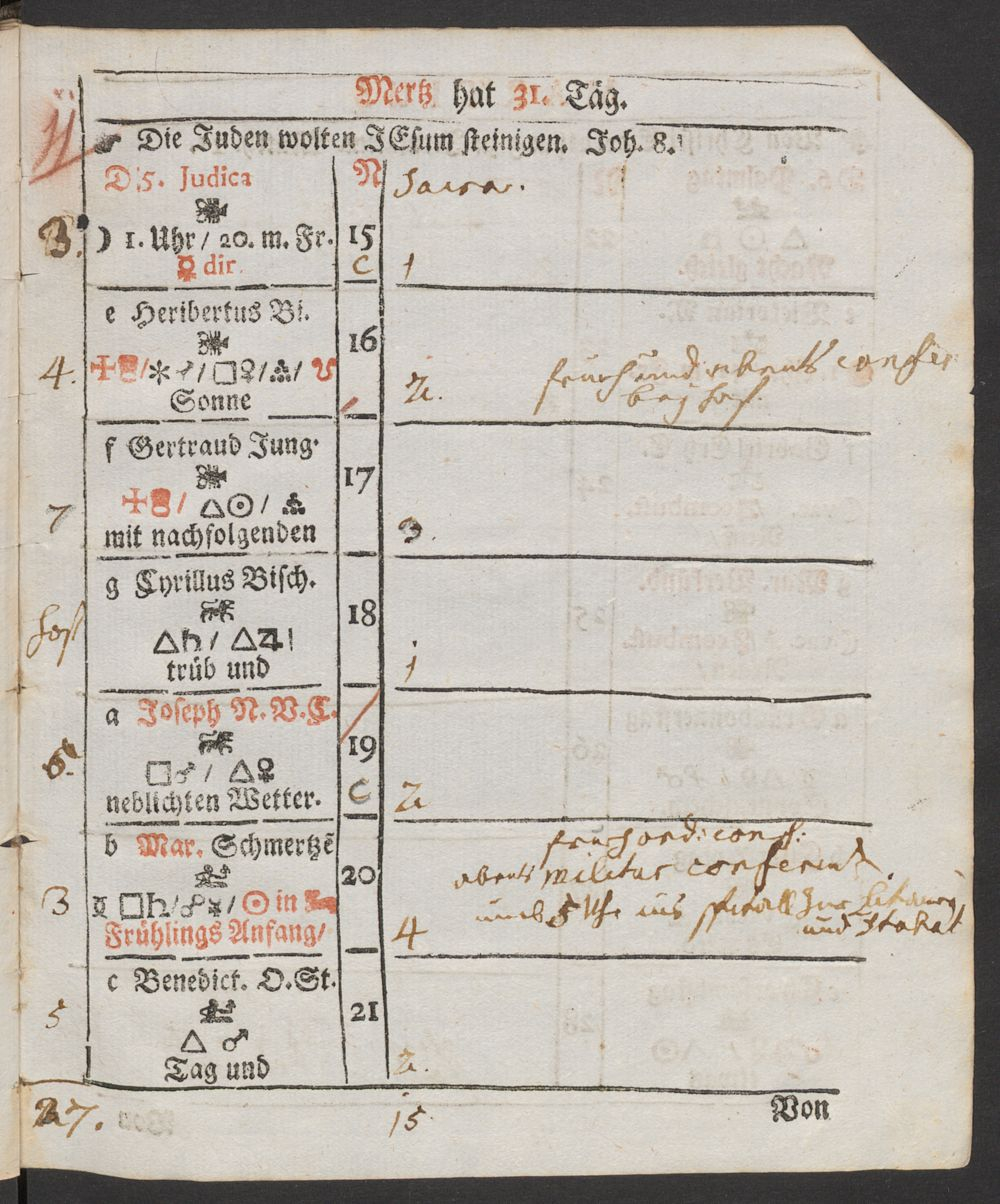 Mertz hat 31. Täg.
Die Juden wolten JEsum steinigen. Joh. 8.
D 5. Judica N sacra.
3. ☽ 1. Uhr / 20. m. Fr. 15
☿ dir. C 1
e Heribertus Bi.
16
4. / □♀ / / 2.
früh und abents
bey hof.
Sonne
f Gertraud Jung.
17
7 / △☉ /
mit nachfolgenden 3.
g Cyrillus Bisch.
18
hof △♄ / △♃
trüb und 1
a Joseph N. V. C.
19
6. □♂ / △♀
neblichten Wetter. C 2
b Mar. Schmertzẽ
früh ord: conf:
20
abents militar
3 □♄ / ☉ in
umb 5 Uhr ins Spitall zur Litaney
und Stabat
Frühlings Anfang / 4
c Benedict. O. St.
5 21
△ ♂
Tag und 2.
27. 15 Von